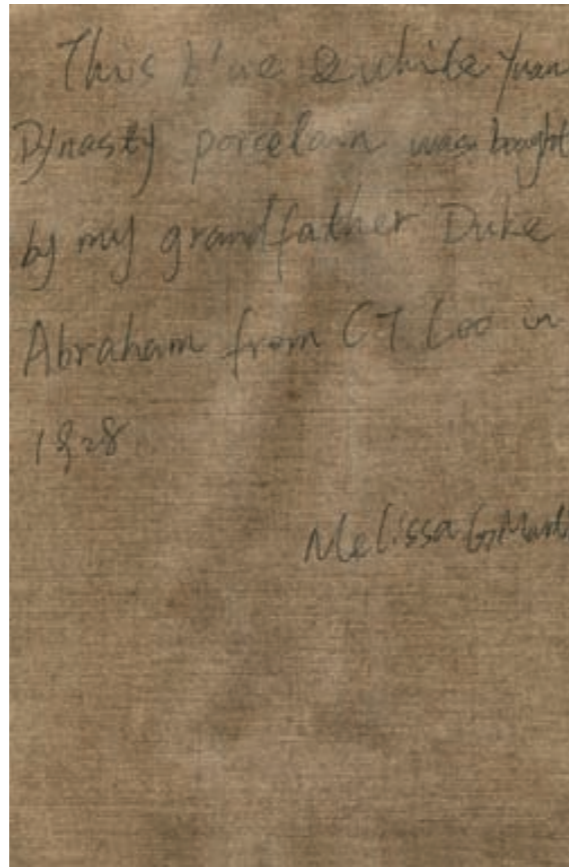 This blue & white Yuan
Dynasty porcelain was bought
by my grandfather Duke
Abraham from CT Loo in
1928
Melissa G